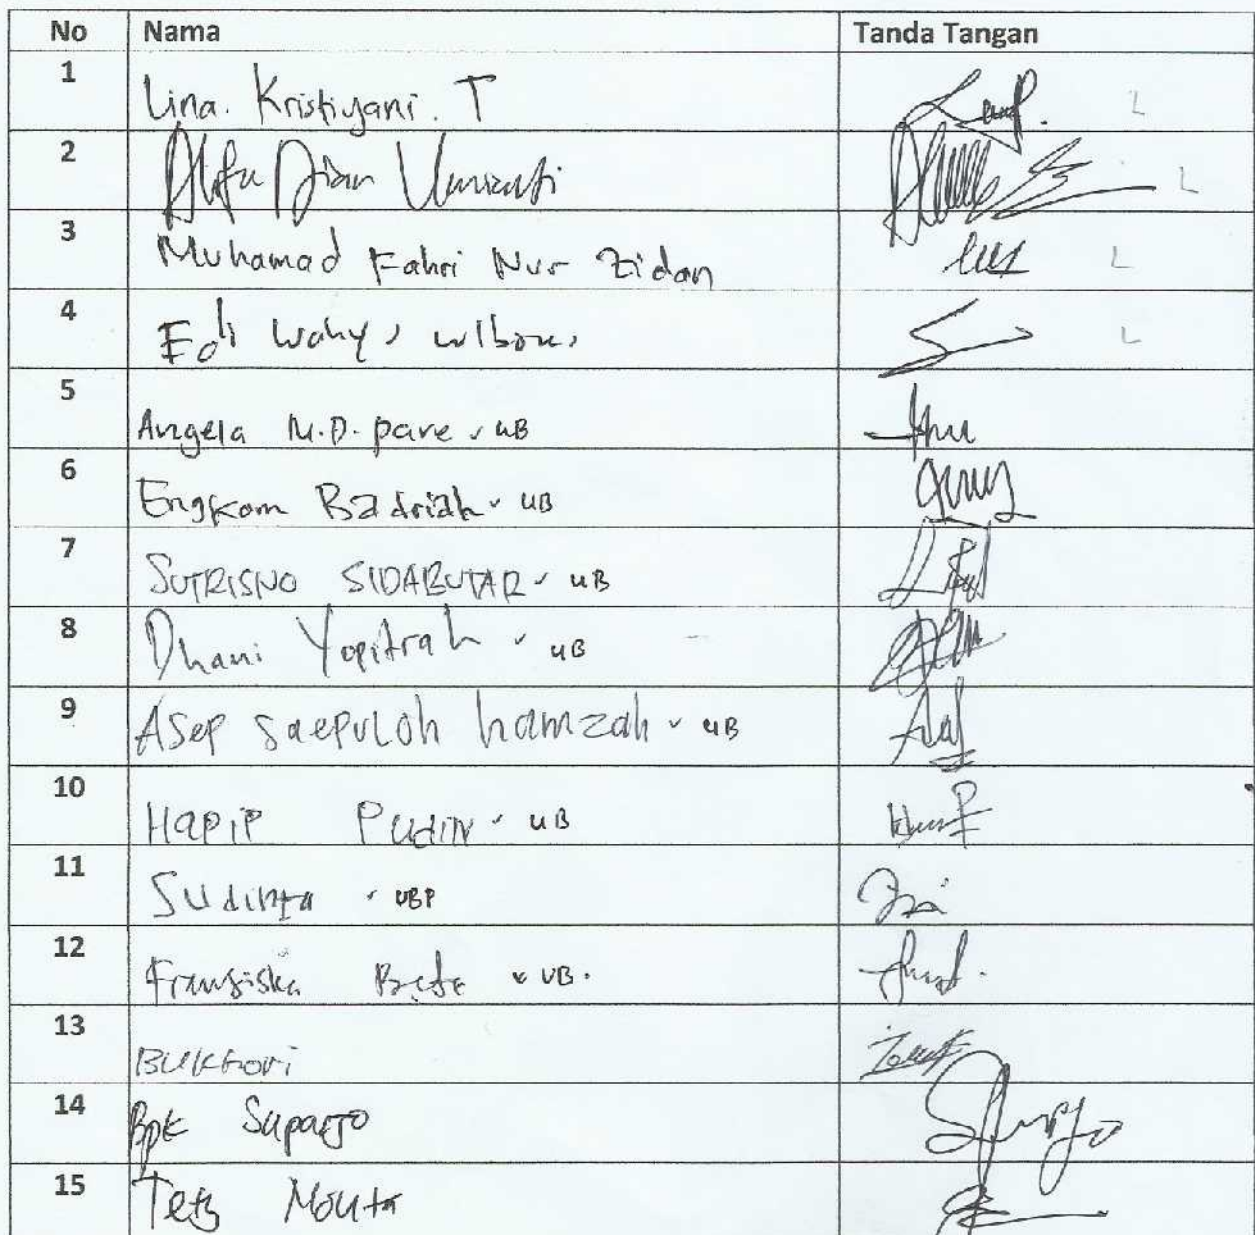 No Nama Tanda Tangan
1 Lina. Kristiyani. T L
2 Dian L
3 Muhamad Fahri Nur Zidan L
4 Edi Wahyu L
5 Angela M.D. pare UB
6 Engkom Badriah UB
7 SUTRISNO SIDABUTAR UB
8 Dhani Yopitrah UB
9 Asep Saepuloh hamzah UB
10 Hapip Pudin UB
11 Sudinta UBP
12 Fransiska UB.
13 Bukhori
14 Bpk Suparjo
15